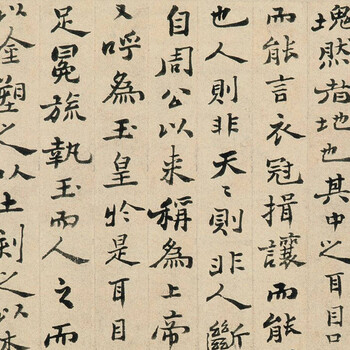 塊然者地也其中之耳目口
而能言衣冠揖讓而能
也人則非天〻則非人斷
自周公以來稱為上帝
又呼為玉皇於是耳目
足冕旒執玉而人之而
以金塑之以土刻之以木